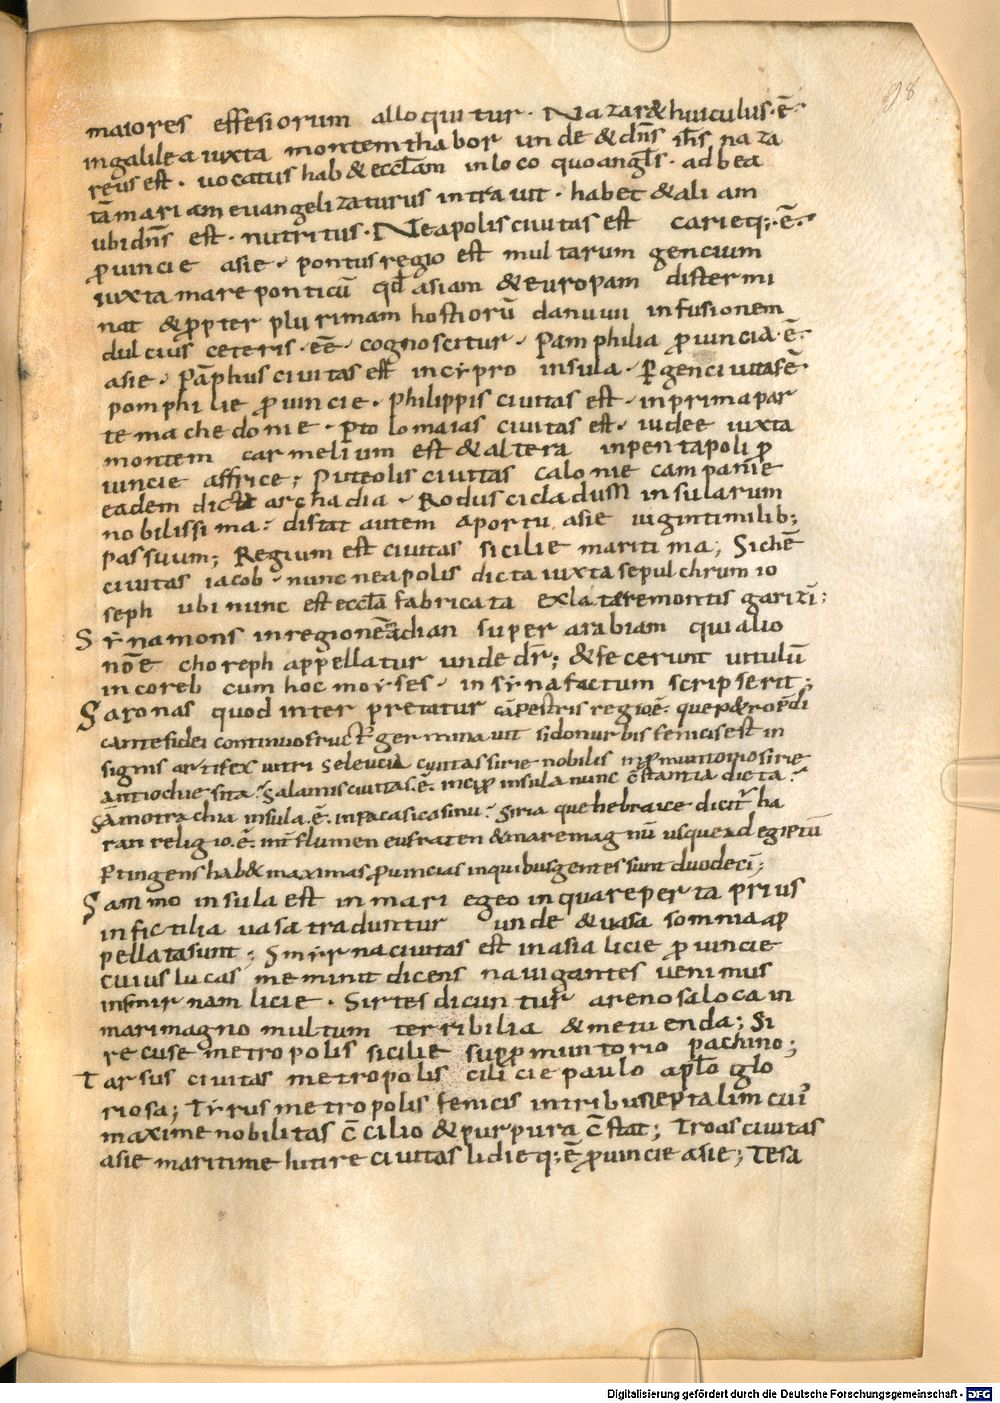 98
maiores effesiorum alloquitur · Nazar& huiculus · ē ·
ingalilea iuxta montem thabor unde & dn̄s ih̄s naza
reus est · uocatus hab& eccl̄am in loco quo angl̄s · ad bea
tā mariam euangelizaturus intrauit · habet & aliam
ubi dn̄s est · nutritus · Neapolis ciuitas est carie q; · ē ·
ꝓuincie asie · pontus regio est multarum gencium
iuxta mare ponticū qđ asiam & europam distermi
nat & ꝓpter plurimam hostiorū danuuii infusionem
dulcius ceteris · eē · cognoscitur · Pamphilia ꝓuincia · ē ·
asie · Pāphus ciuitas est in cẏpro insula · Ꝑgen ciuitas ē
pomphilie ꝓuincie · philippis ciuitas est · in prima par
te machedonie · Ptolomaias ciuitas est · iudee iuxta
montem carmelium est & altera in pentapoli ꝓ
uincie affrice; Puteolis ciuitas colonie campanie
eadem dicta archadia · Rodus cicladum insularum
nobilissima: distat autem a portu asie uiginti milib;
passuum; Regium est ciuitas sicilie maritima; Sichē
ciuitas iacob · nunc neapolis dicta iuxta sepulchrum io
seph ubi nunc est eccl̄a fabricata ex latere montis garizī;
Sẏna mons in regione madian super arabiam qui alio
nōe choreph appellatur unde dr̄; & fecerunt uitulū
in coreb cum hoc moẏses · in sẏna factum scripserit;
Saronas quod interpretatur cāpestris regio ē · que p& ro pedi
cante fidei continuo fructū germinauit sidon urbs fenicis est in
signis artifex uitri Seleucia ciuitas sirie nobilis in ꝓmuntorio sirie
antiochie sita: Salamis ciuitas · ē · in cipro insula nunc c̄stantia dicta:
Sāmotrachia insula · ē · in pacasica sinu: Siria que hebraice dicit̄ ha
ran religio · ē · int̄ flumen eufraten & mare magnū usque ad egiptū
ꝑtingens hab& maximas ꝓuincias in quibus gentes sunt duodecī;
Sammo insula est in mari egeo in qua reperta prius
in fictilia uasa traduntur unde & uasa somnia ap
pellata sunt; Smirna ciuitas est in asia licie ꝓuincie
cuius lucas meminit dicens nauigantes uenimus
in smirnam licie · Sirtes dicuntur arenosa loca in
mari magno multum terribilia & metuenda; Si
recuse metropolis sicilie sup ꝓmuntorio pachino;
Tarsus ciuitas metropolis cilicie paulo apl̄o glo
riosa; Tẏrus metropolis fenicis in tribu neptalim cui'
maxime nobilitas c̄cilio & purpura c̄stat; Troas ciuitas
asie maritime hitire ciuitas lidie q; · ē ꝓuincie asie; Tesa
Digitalisierung gefördert durch die Deutsche Forschungsgemeinschaft - DFG